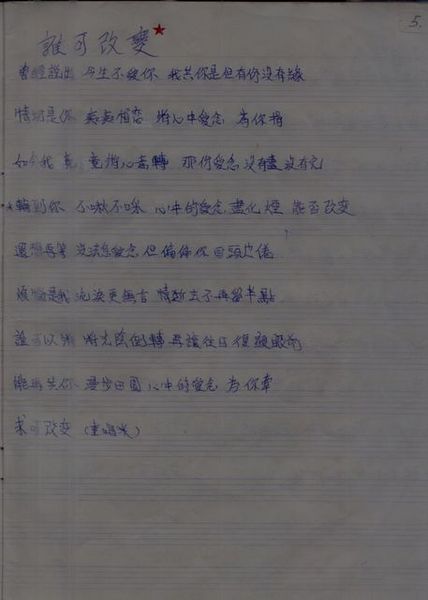 5.
誰可改變
曾經說出 今生不變你 我共你是但有份沒有緣
情切是你 癡癡相戀 將心中愛念 為你
如今我竟 竟將心轉 那份愛念 沒有盡沒有完
輪到你 不啾不咪 心中的愛念 盡化煙 能否改变
還想再等 沒法忘愛念 但偏偏你 回頭已倦
是我 流淚更無言 情逝去不再留半點
誰可以將 將光陰倒轉 再讓往日 復現眼前
能再共你 漫步田園 心中的愛念 為你牽
求可改变 (重唱*)